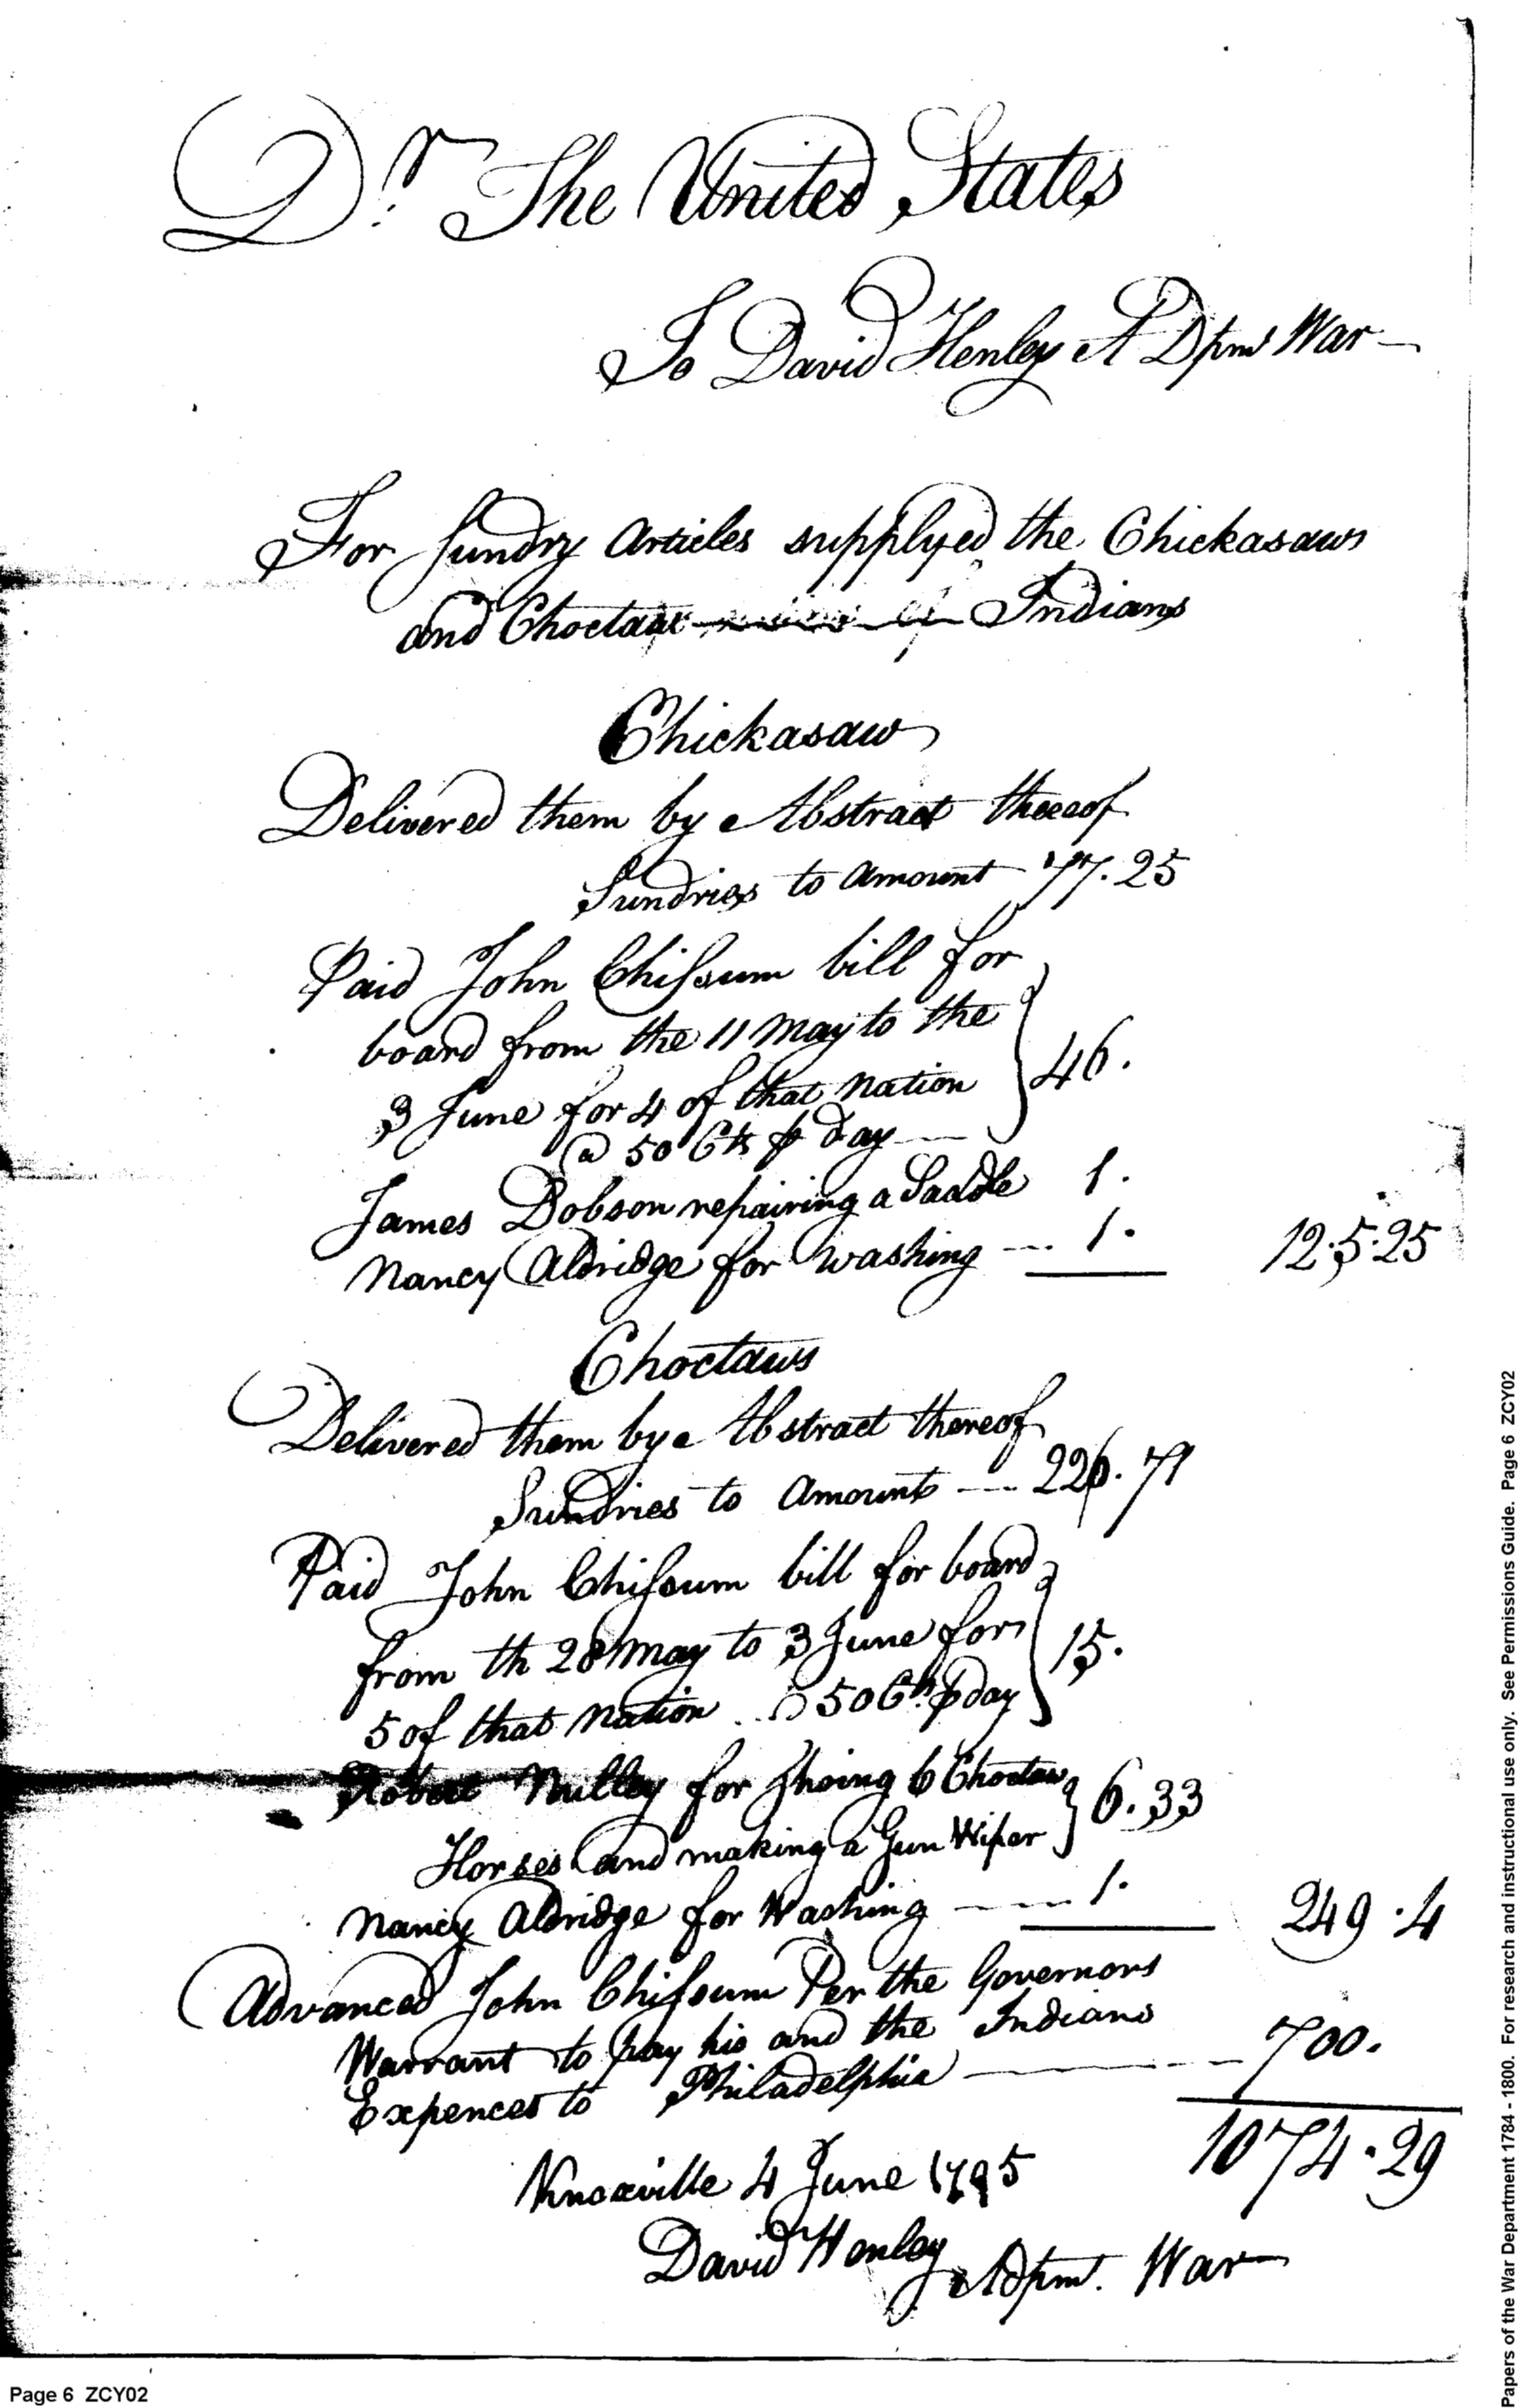 Dr. The United States
To David Henley A Dpmt War
For Sundry Articles supplyed the Chickasaws
and Choctaw Indians
Chickasaw
Delivered them by Abstract thereof
Sundries to amount 77.25
Paid John Chissum bill for
board from the 11 May to the
3 June for 4 of that Nation 46.
@ 50 Cts ⅌ day
James Dobson repairing a Saddle 1.
Nancy Aldridge for washing --- 1. 125.25
Choctaws
Delivered them by Abstract thereof
Sundries to Amount --- 226.71
Paid John Chissum bill for board
from th 28 May to 3 June for 15.
5 of that Nation @ 50 Cts. ⅌ day
Robert Nulley for Shoing 6 Choctaw 6.33
Horses and making a Gun Wiper
Nancy Aldridge for Washing --- 1. 249.4
Advanced John Chissum Per the Governors
Warrant to pay his and the Indians 700.
Expences to Philadelphia
1074.29
Knoxville 4 June 1795
David Henley
Adpmt. War
Page 6 ZCY02
Papers of the War Department 1784 - 1800. For research and instructional use only. See Permissions Guide. Page 6 ZCY02